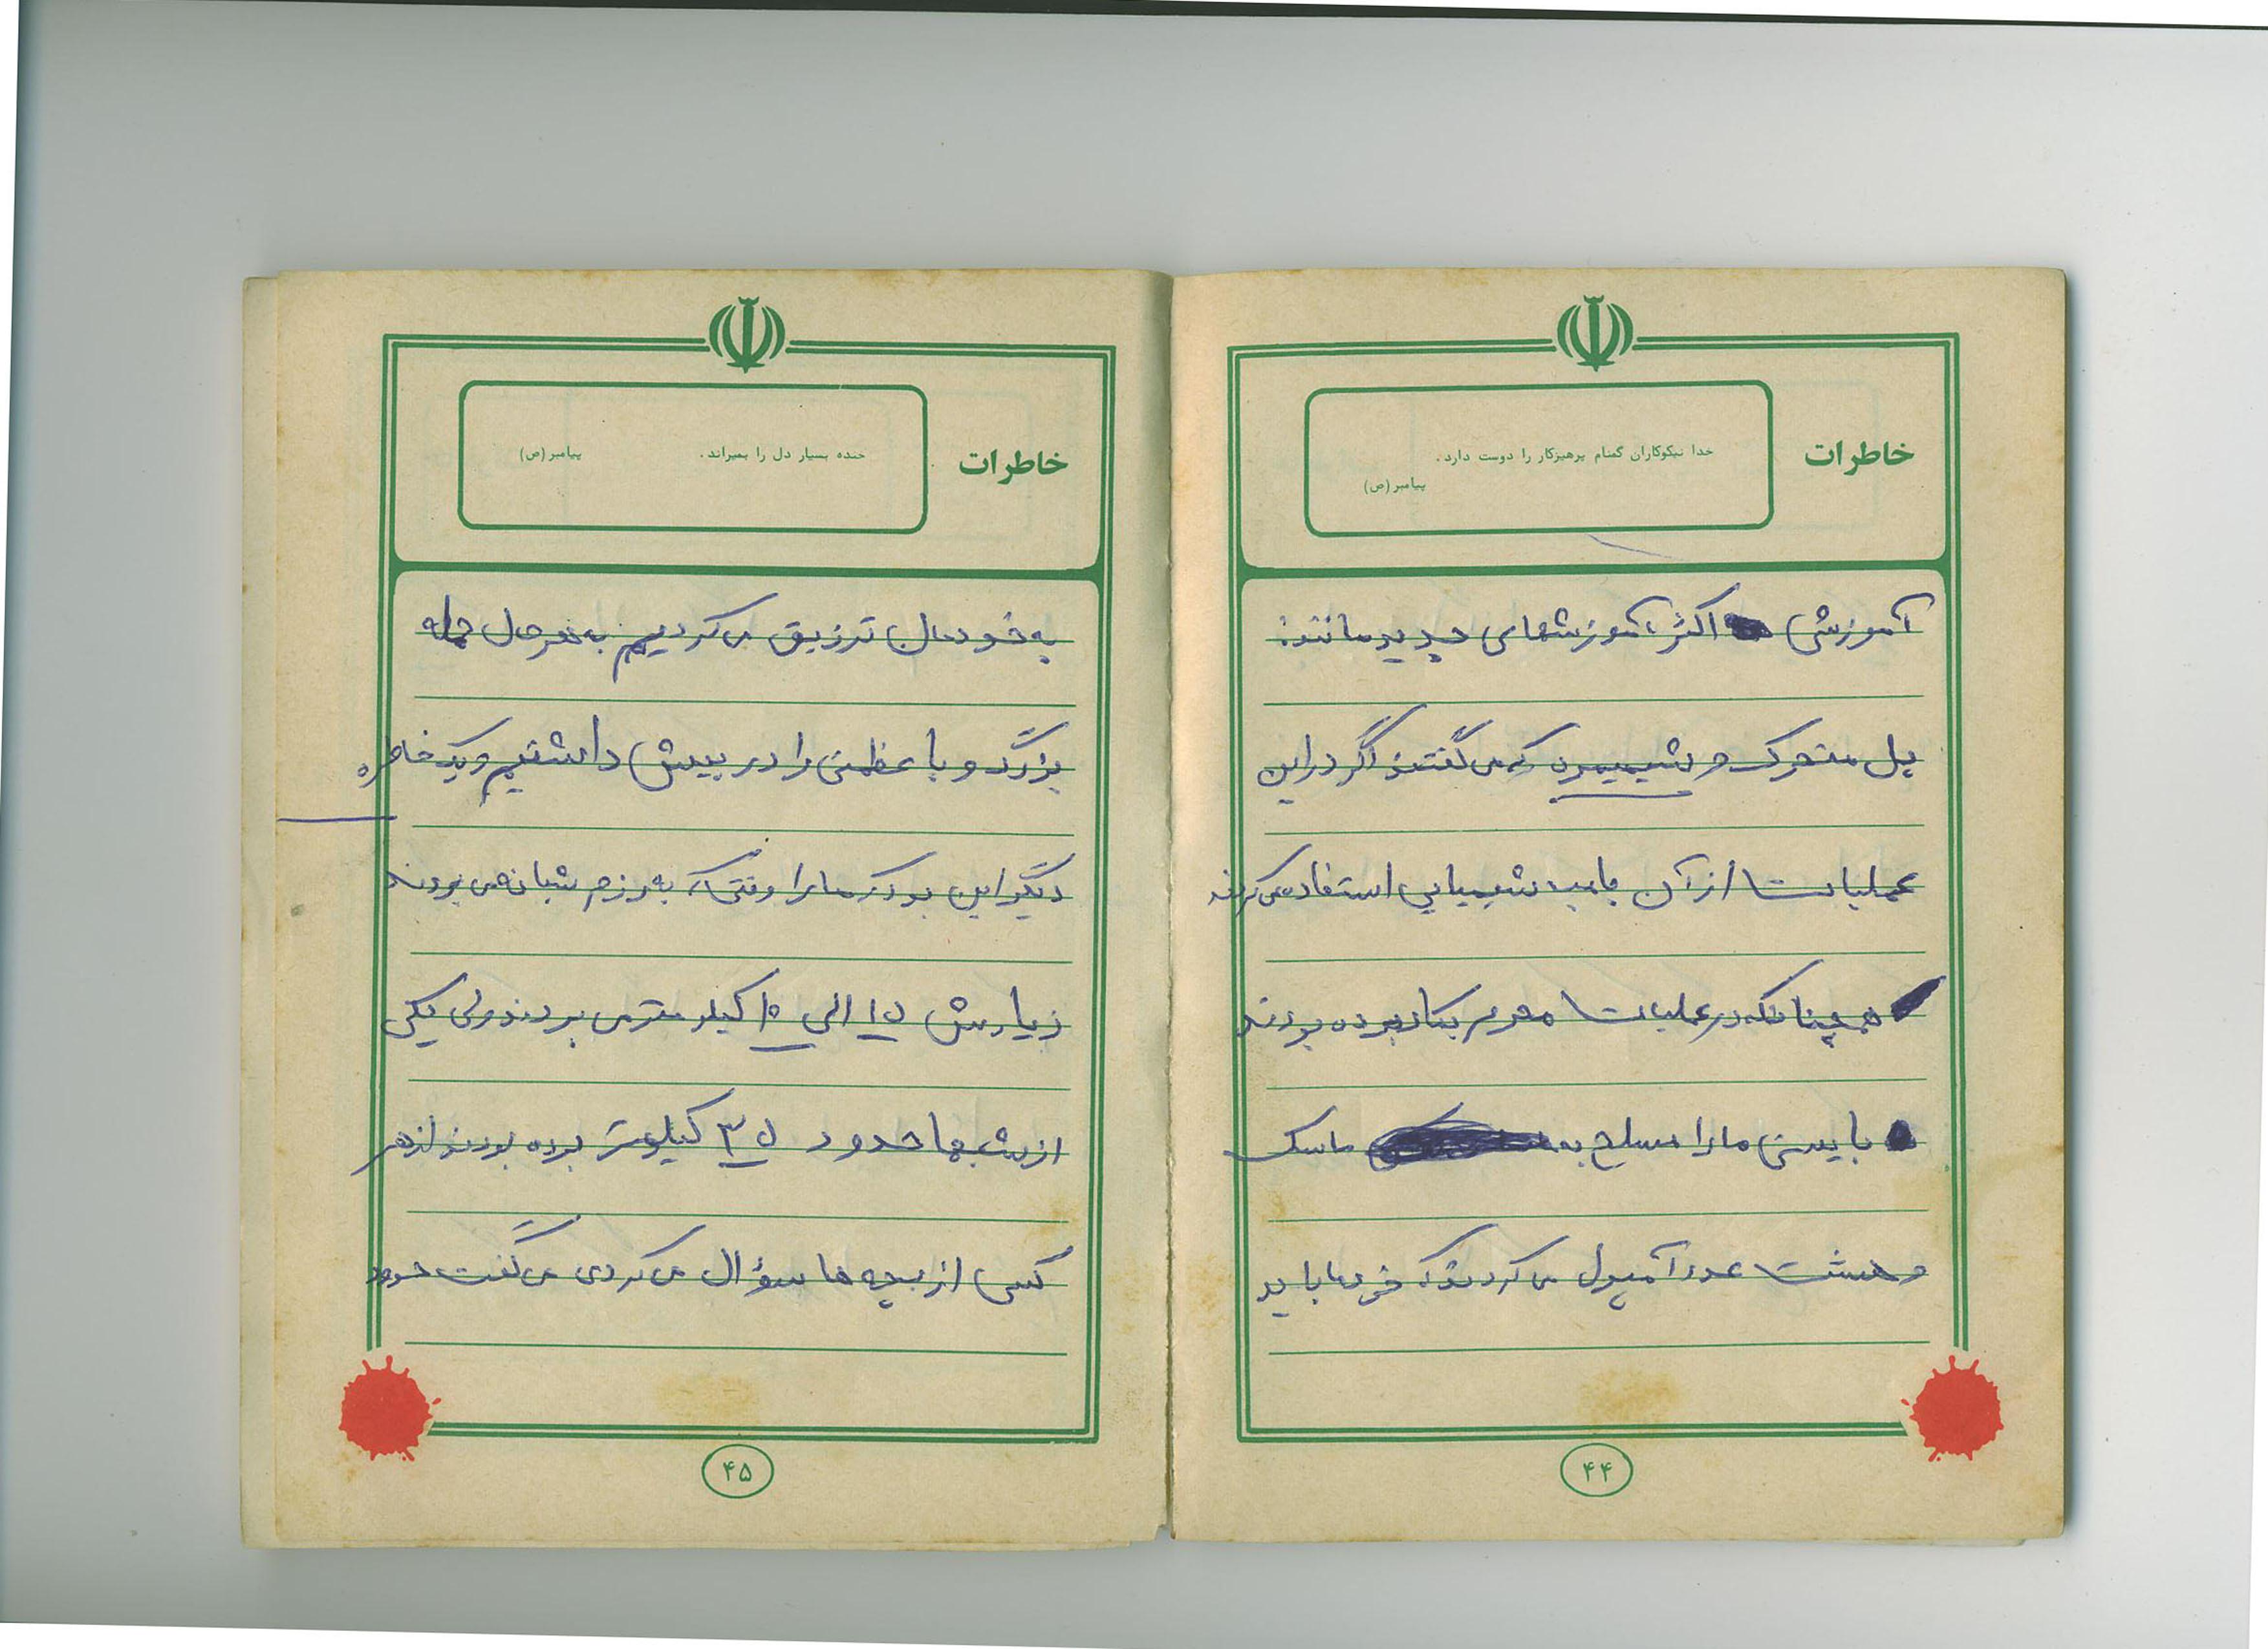 خاطرات
خدا نیکوکاران گمنام پرهیزکار را دوست دارد.
پیامبر (ص)
آموزشی اکثر آموزشهای جدید مانند:
پل متحرک و شیمیرن که می گفتند اگر در این
عملیات از آن بامب شیمیایی استفاده می کردند
همچنانکه در عملیات محرم بکار برده بودند
بایستی ما را مسلح به ماسک
و هشت عدد آمپول می کردند که خودمان باید
۴۴
خاطرات
خنده بسیار دل را بمیراند. پیامبر (ص)
به خودمان تزریق می کردیم به هر حال حمله
بزرگ و با عظمتی را در پیش داشتیم و یک خاطره
دیگر این بود که ما را وقتی که به رزم شبانه می بردند
زیادش ۱۵ الی ۱۰ کیلومتر می بردند ولی یکی
از شبها حدود ۳۵ کیلومتر برده بودند از هر
کسی از بچه ها سؤال می کردی می گفت حدود
۴۵